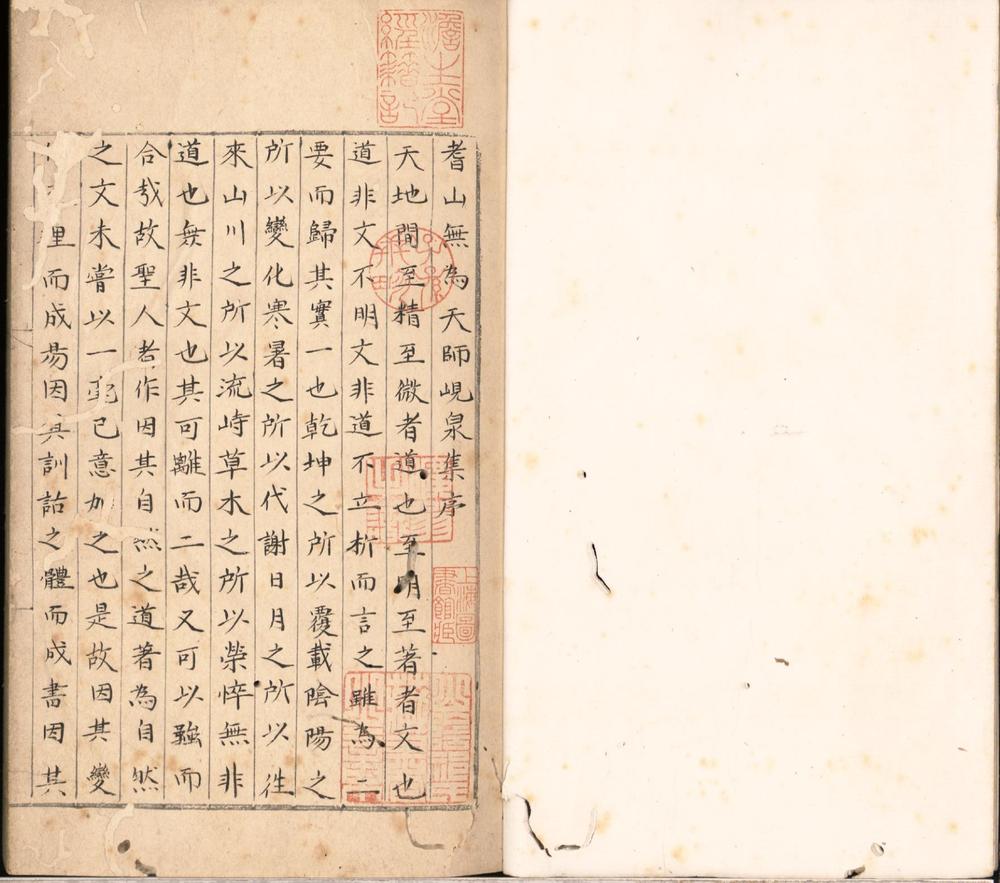 耆山無為天師峴泉集序
天地間至精至微者道也至明至著者文也
道非文不明文非道不立析而言之雖為二
要而歸其實一也乾坤之所以覆載陰陽之
所以變化寒暑之所以代謝日月之所以徃
來山川之所以流峙草木之所以榮悴無非
道也無非文也其可離而二哉又可以強而
合哉故聖人者作因其自然之道著為自然
之文未嘗以一毫己意加之也是故因其變
理而成易因其訓詁之體而成書因其
澹生堂
經籍記
上海圖
書館藏